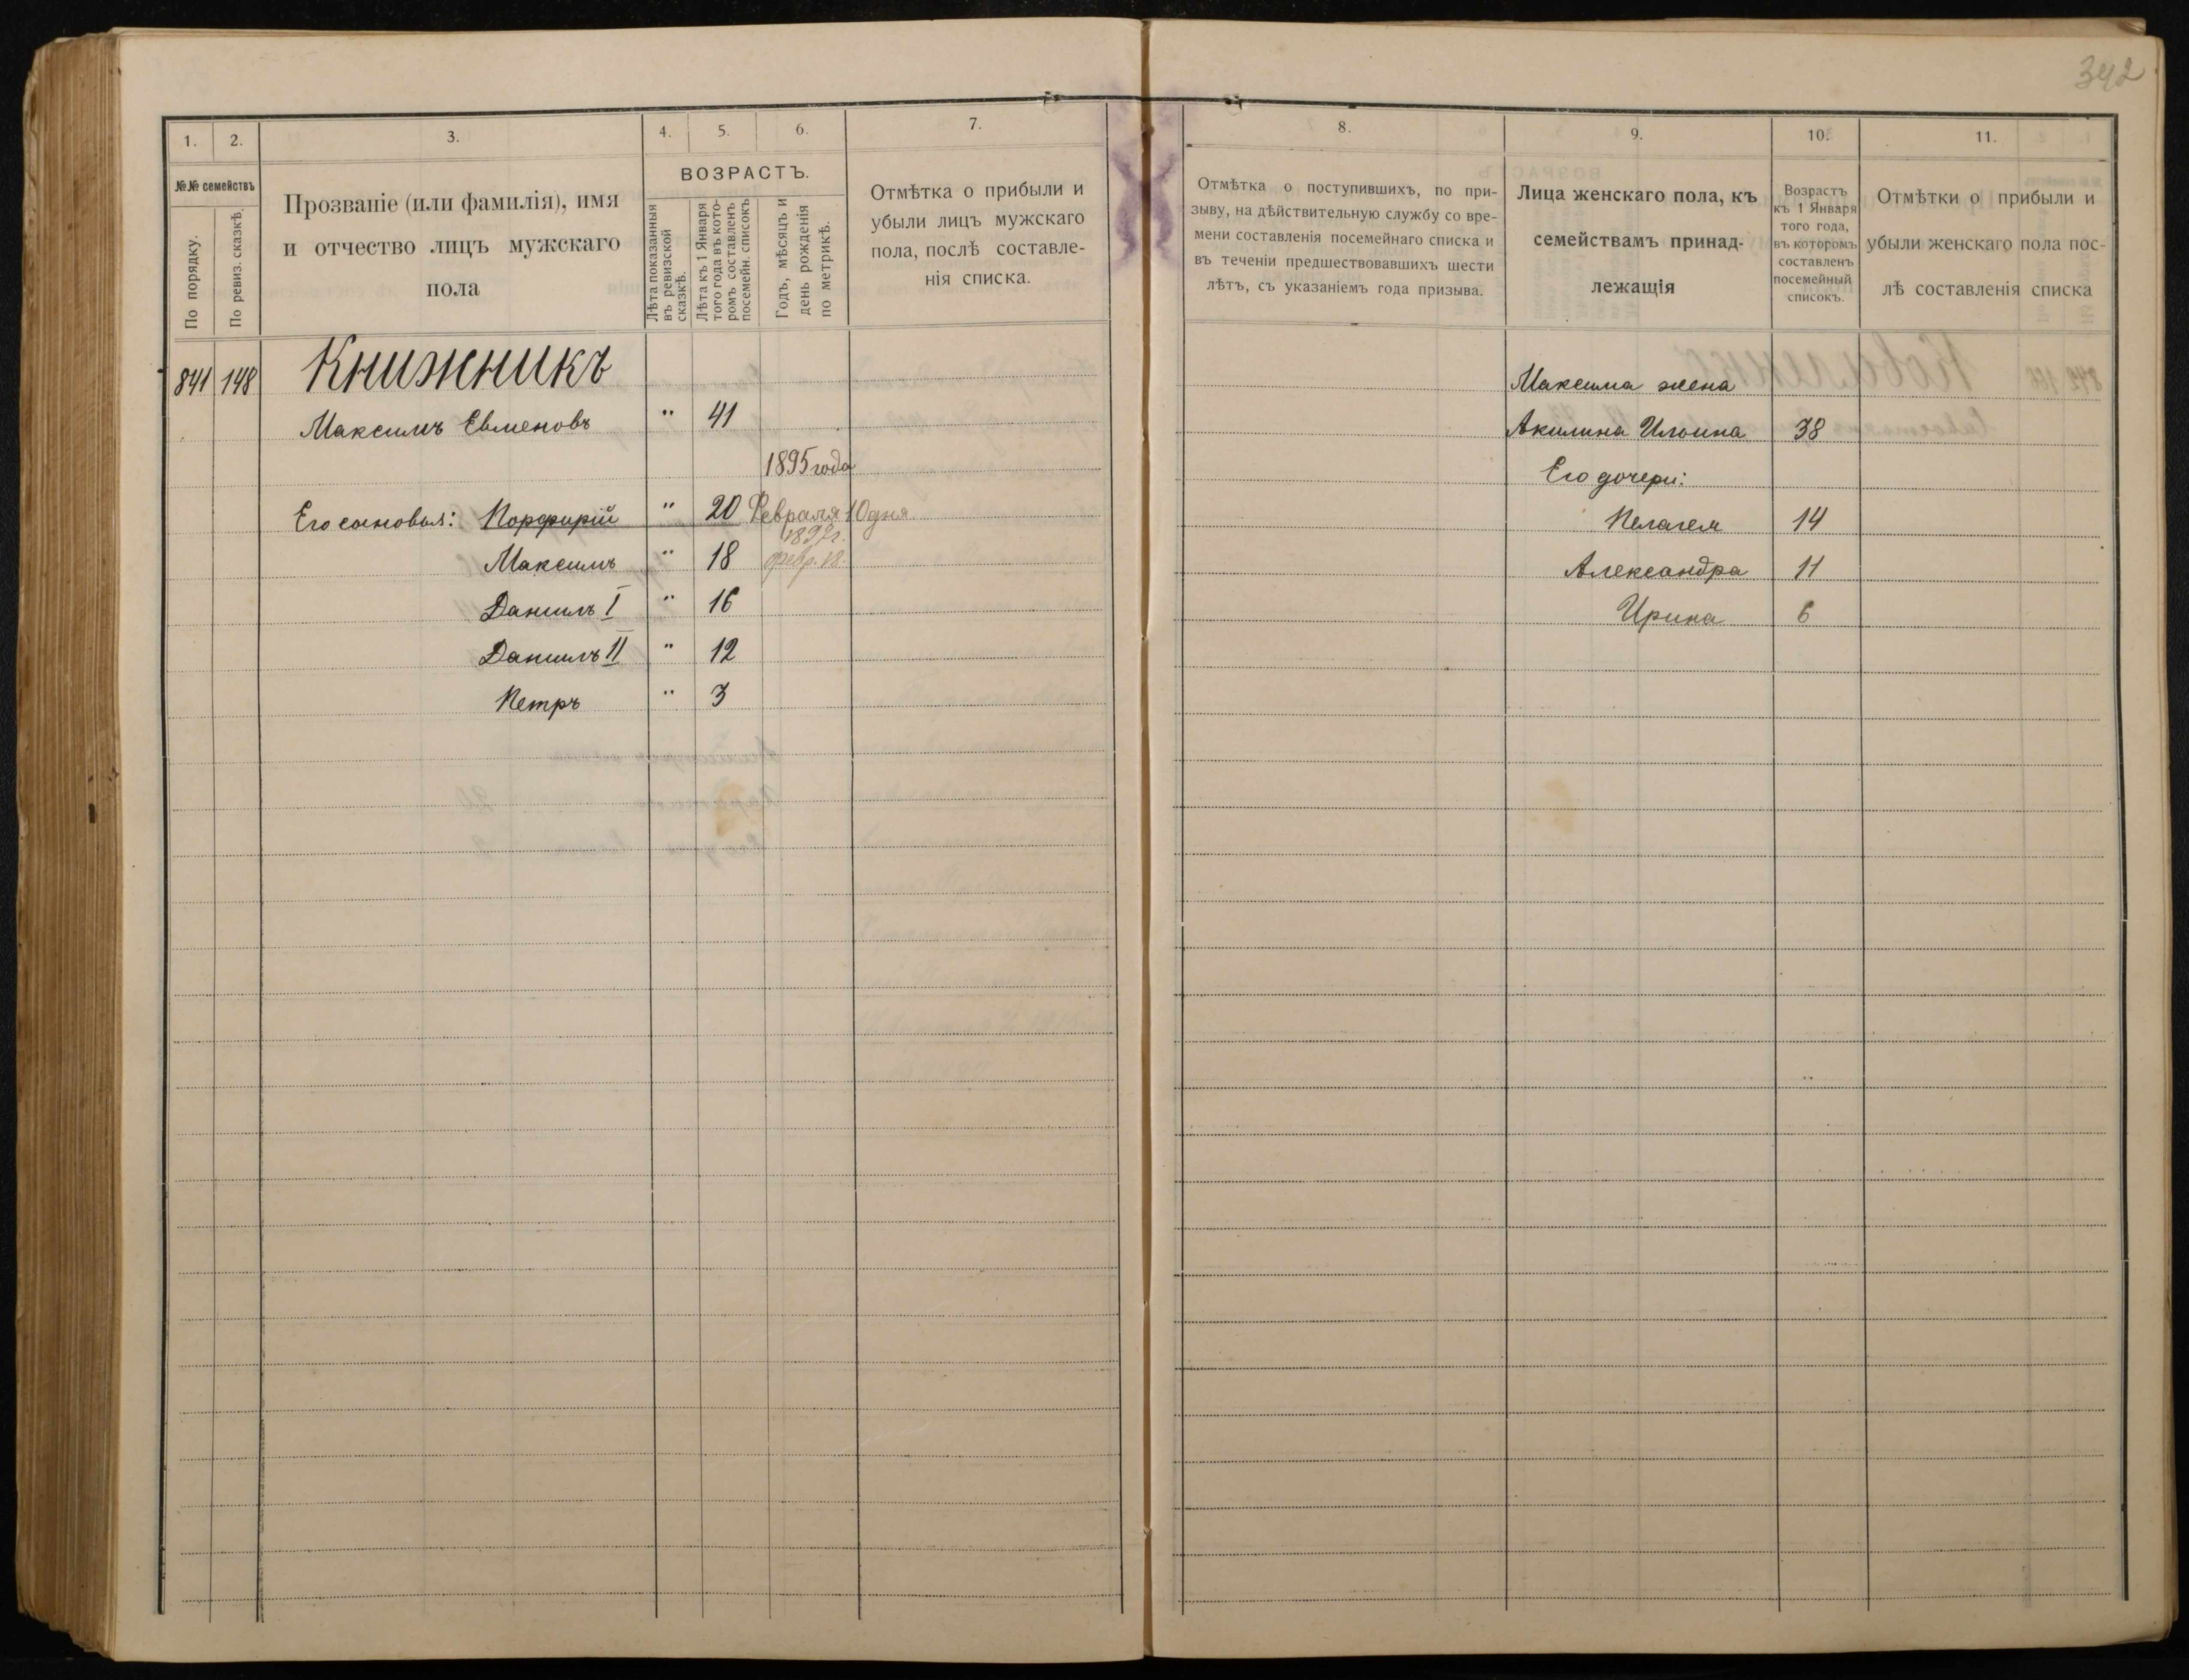 342
1. 2. 3. 4. 5. 6. 7.
№№ семействъ
По порядку.
По ревиз. сказкѣ.
Прозваніе (или фамилія), имя
и отчество лицъ мужскаго
пола
ВОЗРАСТЪ.
Лѣта показанныя
въ ревизской
сказкѣ.
Лѣта къ 1 Января
того года въ кото-
ромъ составленъ
посемейн. списокъ
Годъ, мѣсяцъ и
день рожденія
по метрикѣ.
Отмѣтка о прибыли и
убыли лицъ мужскаго
пола, послѣ составле-
нія списка.
841 148 Книжникъ
Максимъ Евменовъ " 41
1895 года
Его сыновья: Порфирій " 20 Февраля 10 дня
1897 г.
Максимъ " 18 февр. 18.
Даніилъ I " 16
Даніилъ II " 12
Петръ " 3
8. 9. 10. 11.
Отмѣтка о поступившихъ, по при-
зыву, на дѣйствительную службу со вре-
мени составленія посемейнаго списка и
въ теченіи предшествовавшихъ шести
лѣтъ, съ указаніемъ года призыва.
Лица женскаго пола, къ
семействамъ принад-
лежащія
Возрастъ
къ 1 Января
того года,
въ которомъ
составленъ
посемейный
списокъ.
Отмѣтки о прибыли и
убыли женскаго пола пос-
лѣ составленія списка
Максима жена
Акилина Ильина 38
Его дочери:
Пелагея 14
Александра 11
Ирина 6